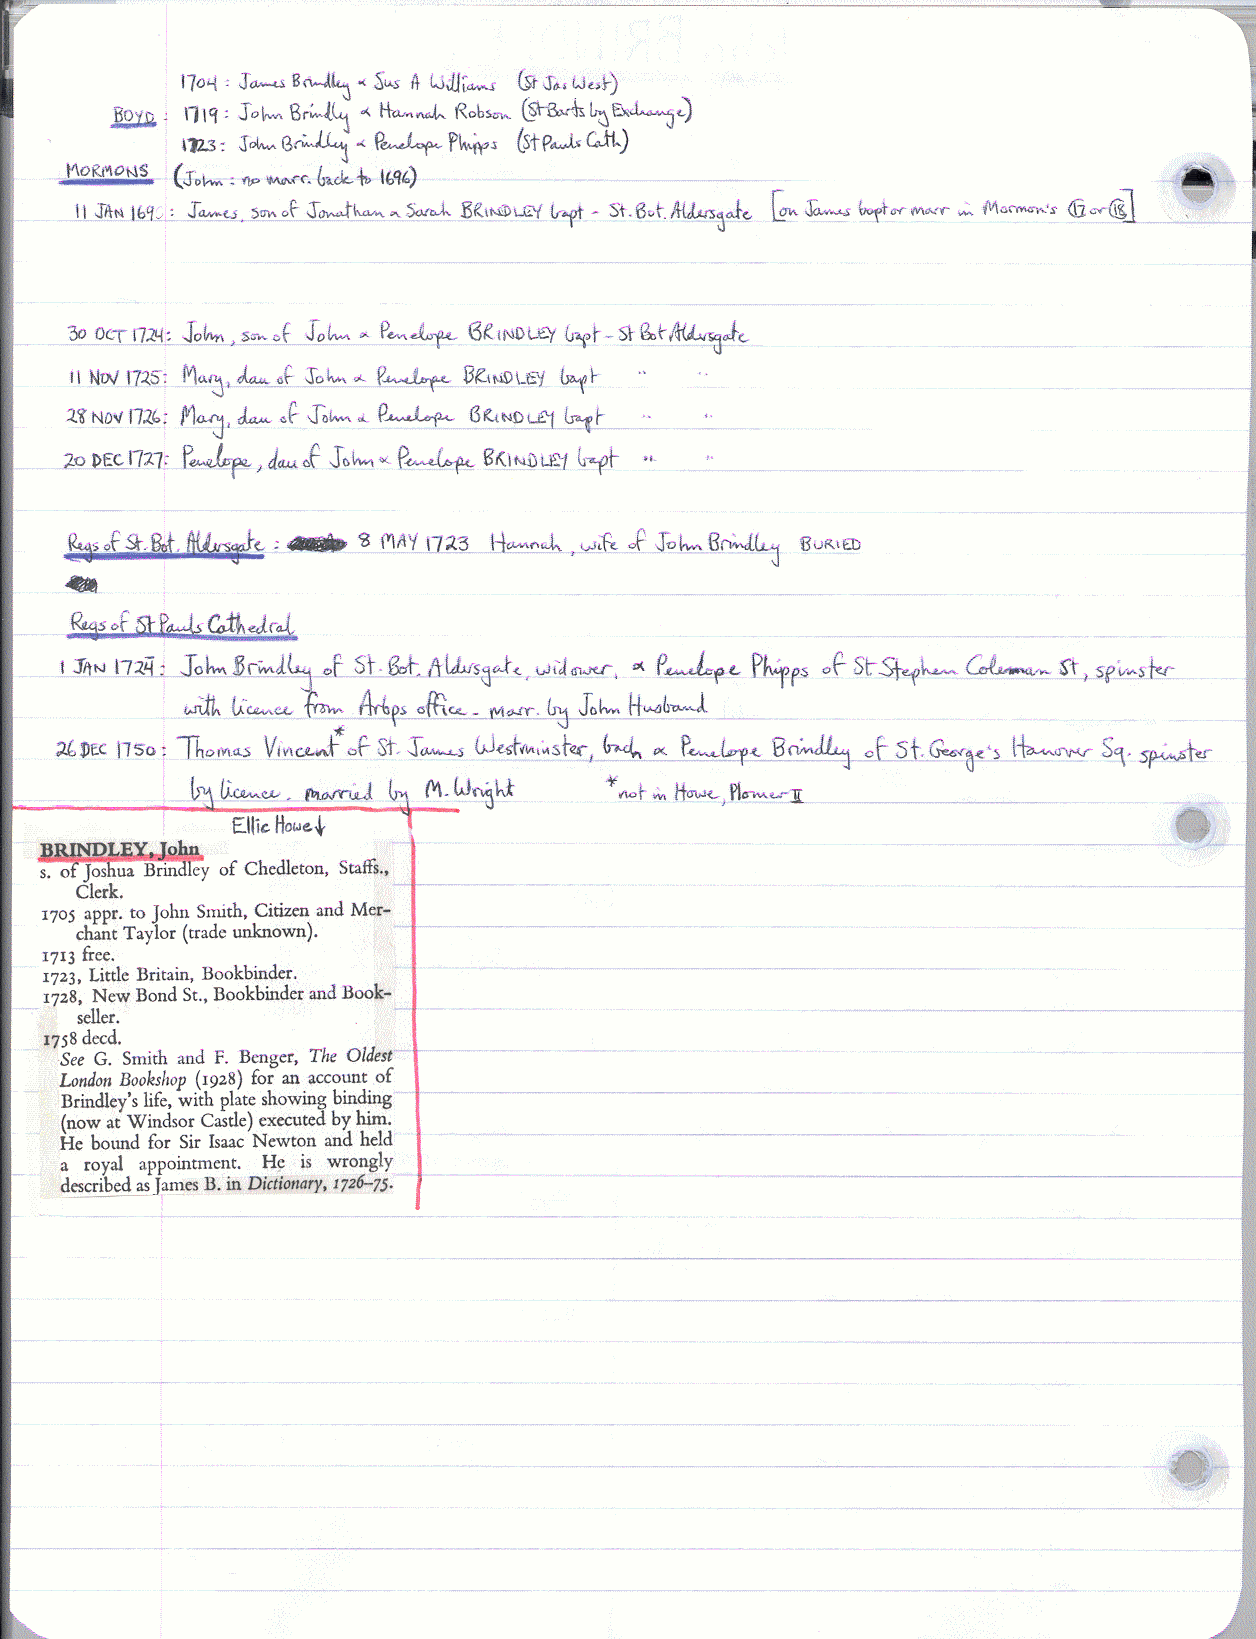 1704: James Brindley & Sus A Williams (St Jas West)
BOYD: 1719: John Brindly & Hannah Robson (St Barts by Exchange)
1723: John Brindley & Penelope Phipps (St Pauls Cath)
MORMONS (John: no marr. back to 1696)
11 JAN 169: James, son of Jonathan & Sarah BRINDLEY bapt - St. Bot. Aldersgate [on James bapt or marr in Mormon's 17 or 18]
30 OCT 1724: John, son of John & Penelope BRINDLEY bapt - St Bot Aldersgate
11 NOV 1725: Mary, dau of John & Penelope BRINDLEY bapt " "
28 NOV 1726: Mary, dau of John & Penelope BRINDLEY bapt " "
20 DEC 1727: Penelope, dau of John & Penelope BRINDLEY bapt " "
Regs of St. Bot. Aldersgate: 8 MAY 1723 Hannah, wife of John Brindley BURIED
Regs of St Pauls Cathedral
1 JAN 1724: John Brindley of St. Bot. Aldersgate, widower, & Penelope Phipps of St. Stephen Coleman St, spinster
with licence from Arbps office - marr. by John Husband
26 DEC 1750: Thomas Vincent* of St. James Westminster, bach & Penelope Brindley of St. George's Hanover Sq. spinster
by licence. married by M. Wright *not in Howe, Plomer II
Ellic Howe↓
BRINDLEY, John
s. of Joshua Brindley of Chedleton, Staffs.,
Clerk.
1705 appr. to John Smith, Citizen and Mer-
chant Taylor (trade unknown).
1713 free.
1723, Little Britain, Bookbinder.
1728, New Bond St., Bookbinder and Book-
seller.
1758 decd.
See G. Smith and F. Benger, The Oldest
London Bookshop (1928) for an account of
Brindley's life, with plate showing binding
(now at Windsor Castle) executed by him.
He bound for Sir Isaac Newton and held
a royal appointment. He is wrongly
described as James B. in Dictionary, 1726–75.